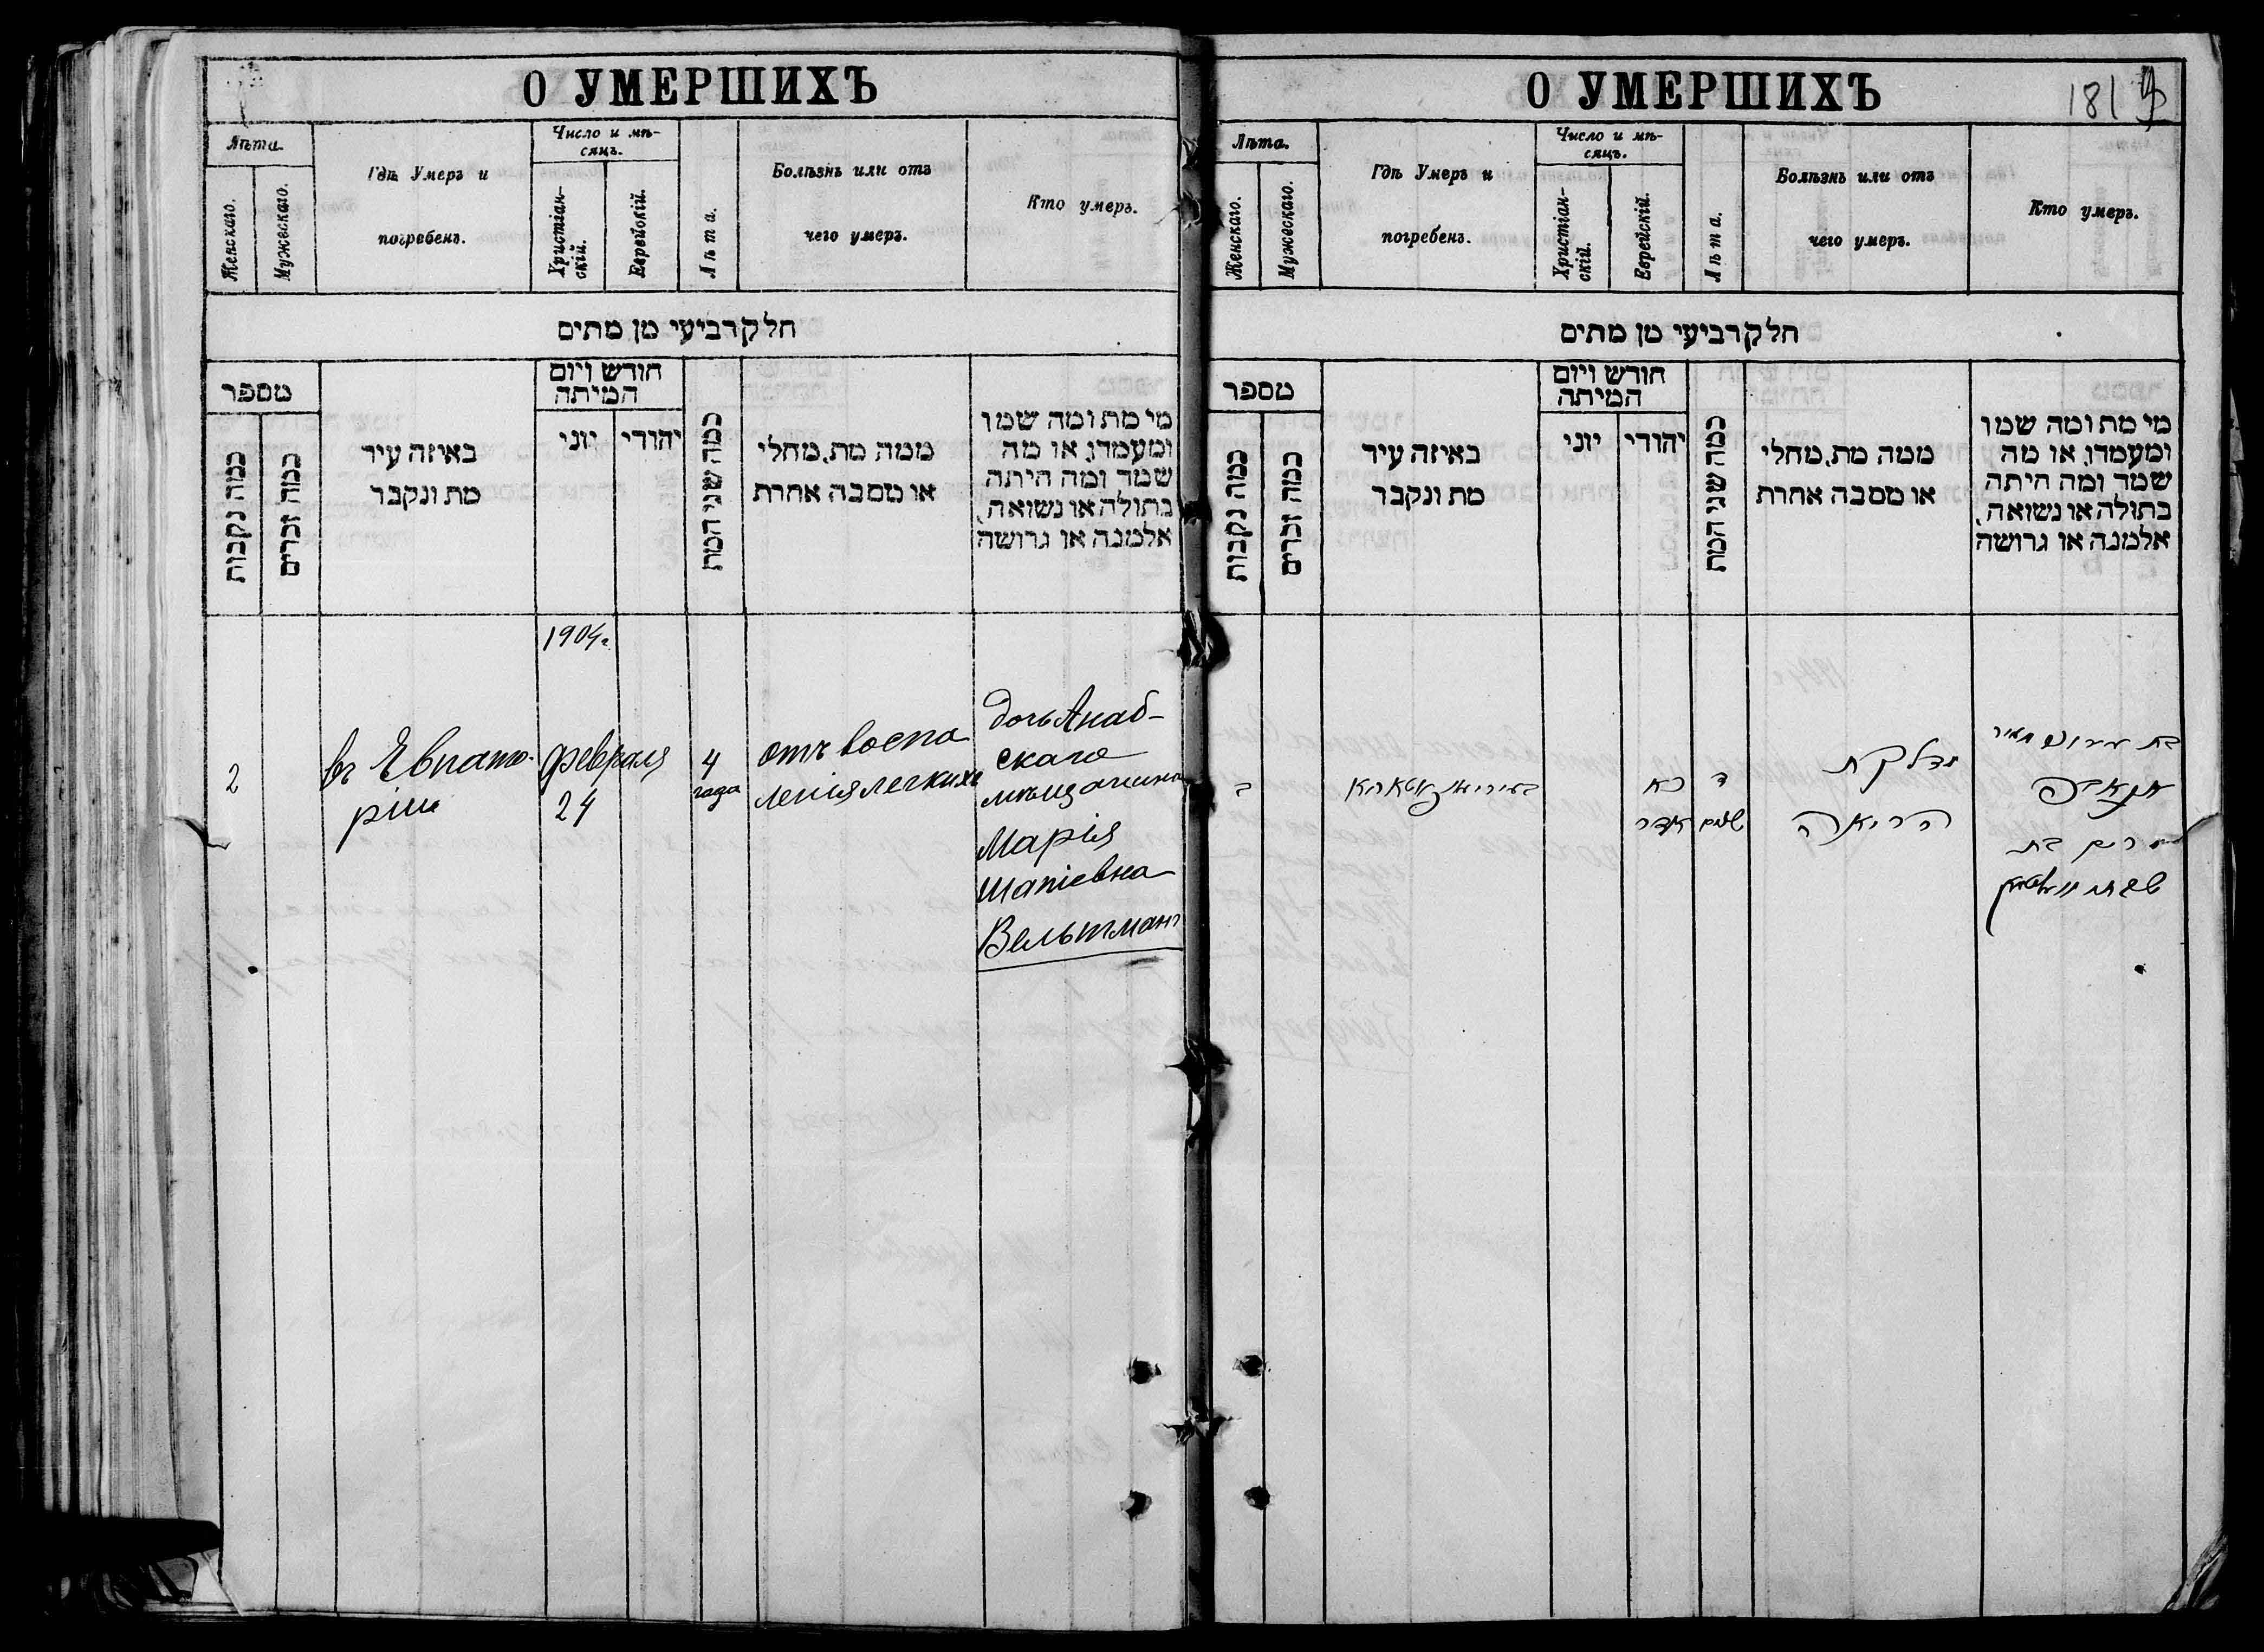 О УМЕРШИХЪ
Лѣта.
Женскаго.
Мужескаго.
Гдѣ Умеръ и
погребенъ.
Число и мѣ-
сяцъ.
Христіан-
скій.
Еврейскій.
Лѣта.
Болѣзнь или отъ
чего умеръ.
Кто умеръ.
חלק רביעי מן מתים
מספר
כמה נקבות
כמה זכרים
באיזה עיר
מת ונקבר
חודש ויום
המיתה
יוני
יהודי
כמה שני המת
ממה מת, מחלי
או מסבה אחרת
מי מת ומה שמו
ומעמדו, או מה
שמה ומה היתה
בתולה או נשואה,
אלמנה או גרושה
1904 г.
2
въ Евпато-
ріи
февраля
24
4
года
отъ воспа
ленія легкихъ
дочь Анаб-
скаго
мѣщанина
Марія
Шапіевна
Вельтманъ
О УМЕРШИХЪ
181
Лѣта.
Женскаго.
Мужескаго.
Гдѣ Умеръ и
погребенъ.
Число и мѣ-
сяцъ.
Христіан-
скій.
Еврейскій.
Лѣта.
Болѣзнь или отъ
чего умеръ.
Кто умеръ.
חלק רביעי מן מתים
מספר
כמה נקבות
כמה זכרים
באיזה עיר
מת ונקבר
חודש ויום
המיתה
יוני
יהודי
כמה שני המת
ממה מת, מחלי
או מסבה אחרת
מי מת ומה שמו
ומעמדו, או מה
שמה ומה היתה
בתולה או נשואה,
אלמנה או גרושה
ב
כא
אדר
ד
שנים
מדלקת
הריאה
בת
מרים בת
שבתי וועלטמאן